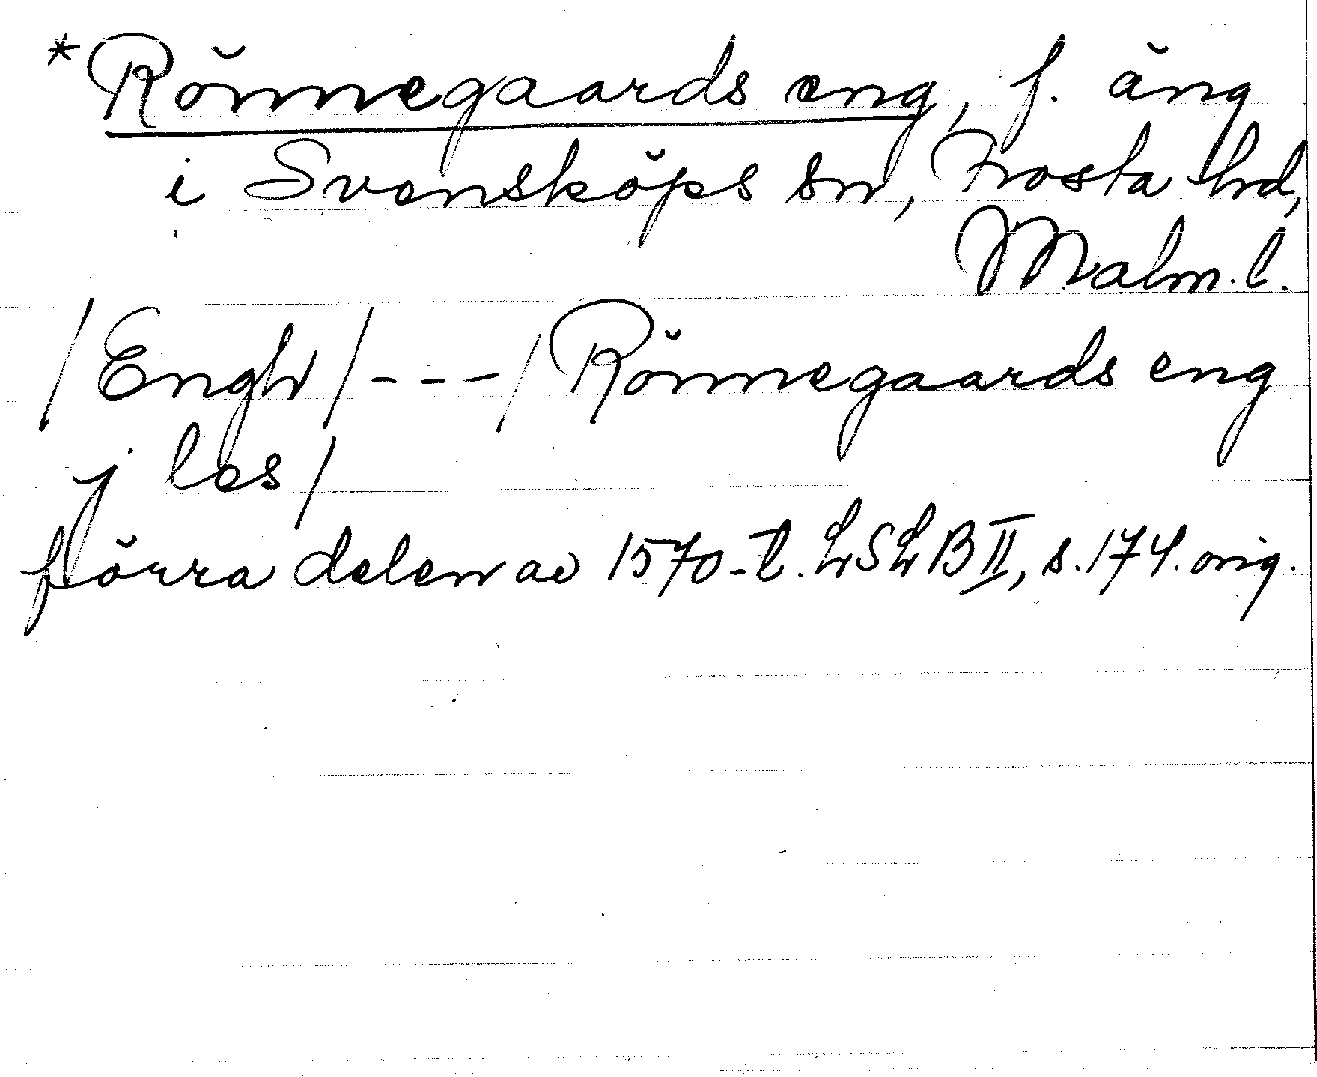 *Rönnegaards eng, f. äng
i Svensköps sn, Frosta hd,
Malm. l.
/Engh/---/Rönnegaards eng
j les/
förra delen av 1570-t. LSLB II, s. 174. orig.